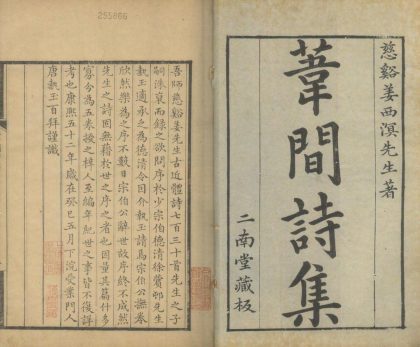 慈谿姜西溟先生著
葦間詩集
二南堂藏板
吾師慈谿姜先生古近體詩七百三十首先生之子
嗣洙裒而錄之欲問序於少宗伯德清徐蘋邨先生
執玉適承之為德清令因介執玉請焉宗伯公撫卷
欣然樂為之序不數日宗伯公辭世故序終不成然
先生之詩固無藉於世之序之者也因量其篇什多
寡分為五卷授之梓人至編年紀世之事皆不復詳
考也康熙五十二年歲在癸巳五月下浣受業門人
唐執玉百拜謹識
255866